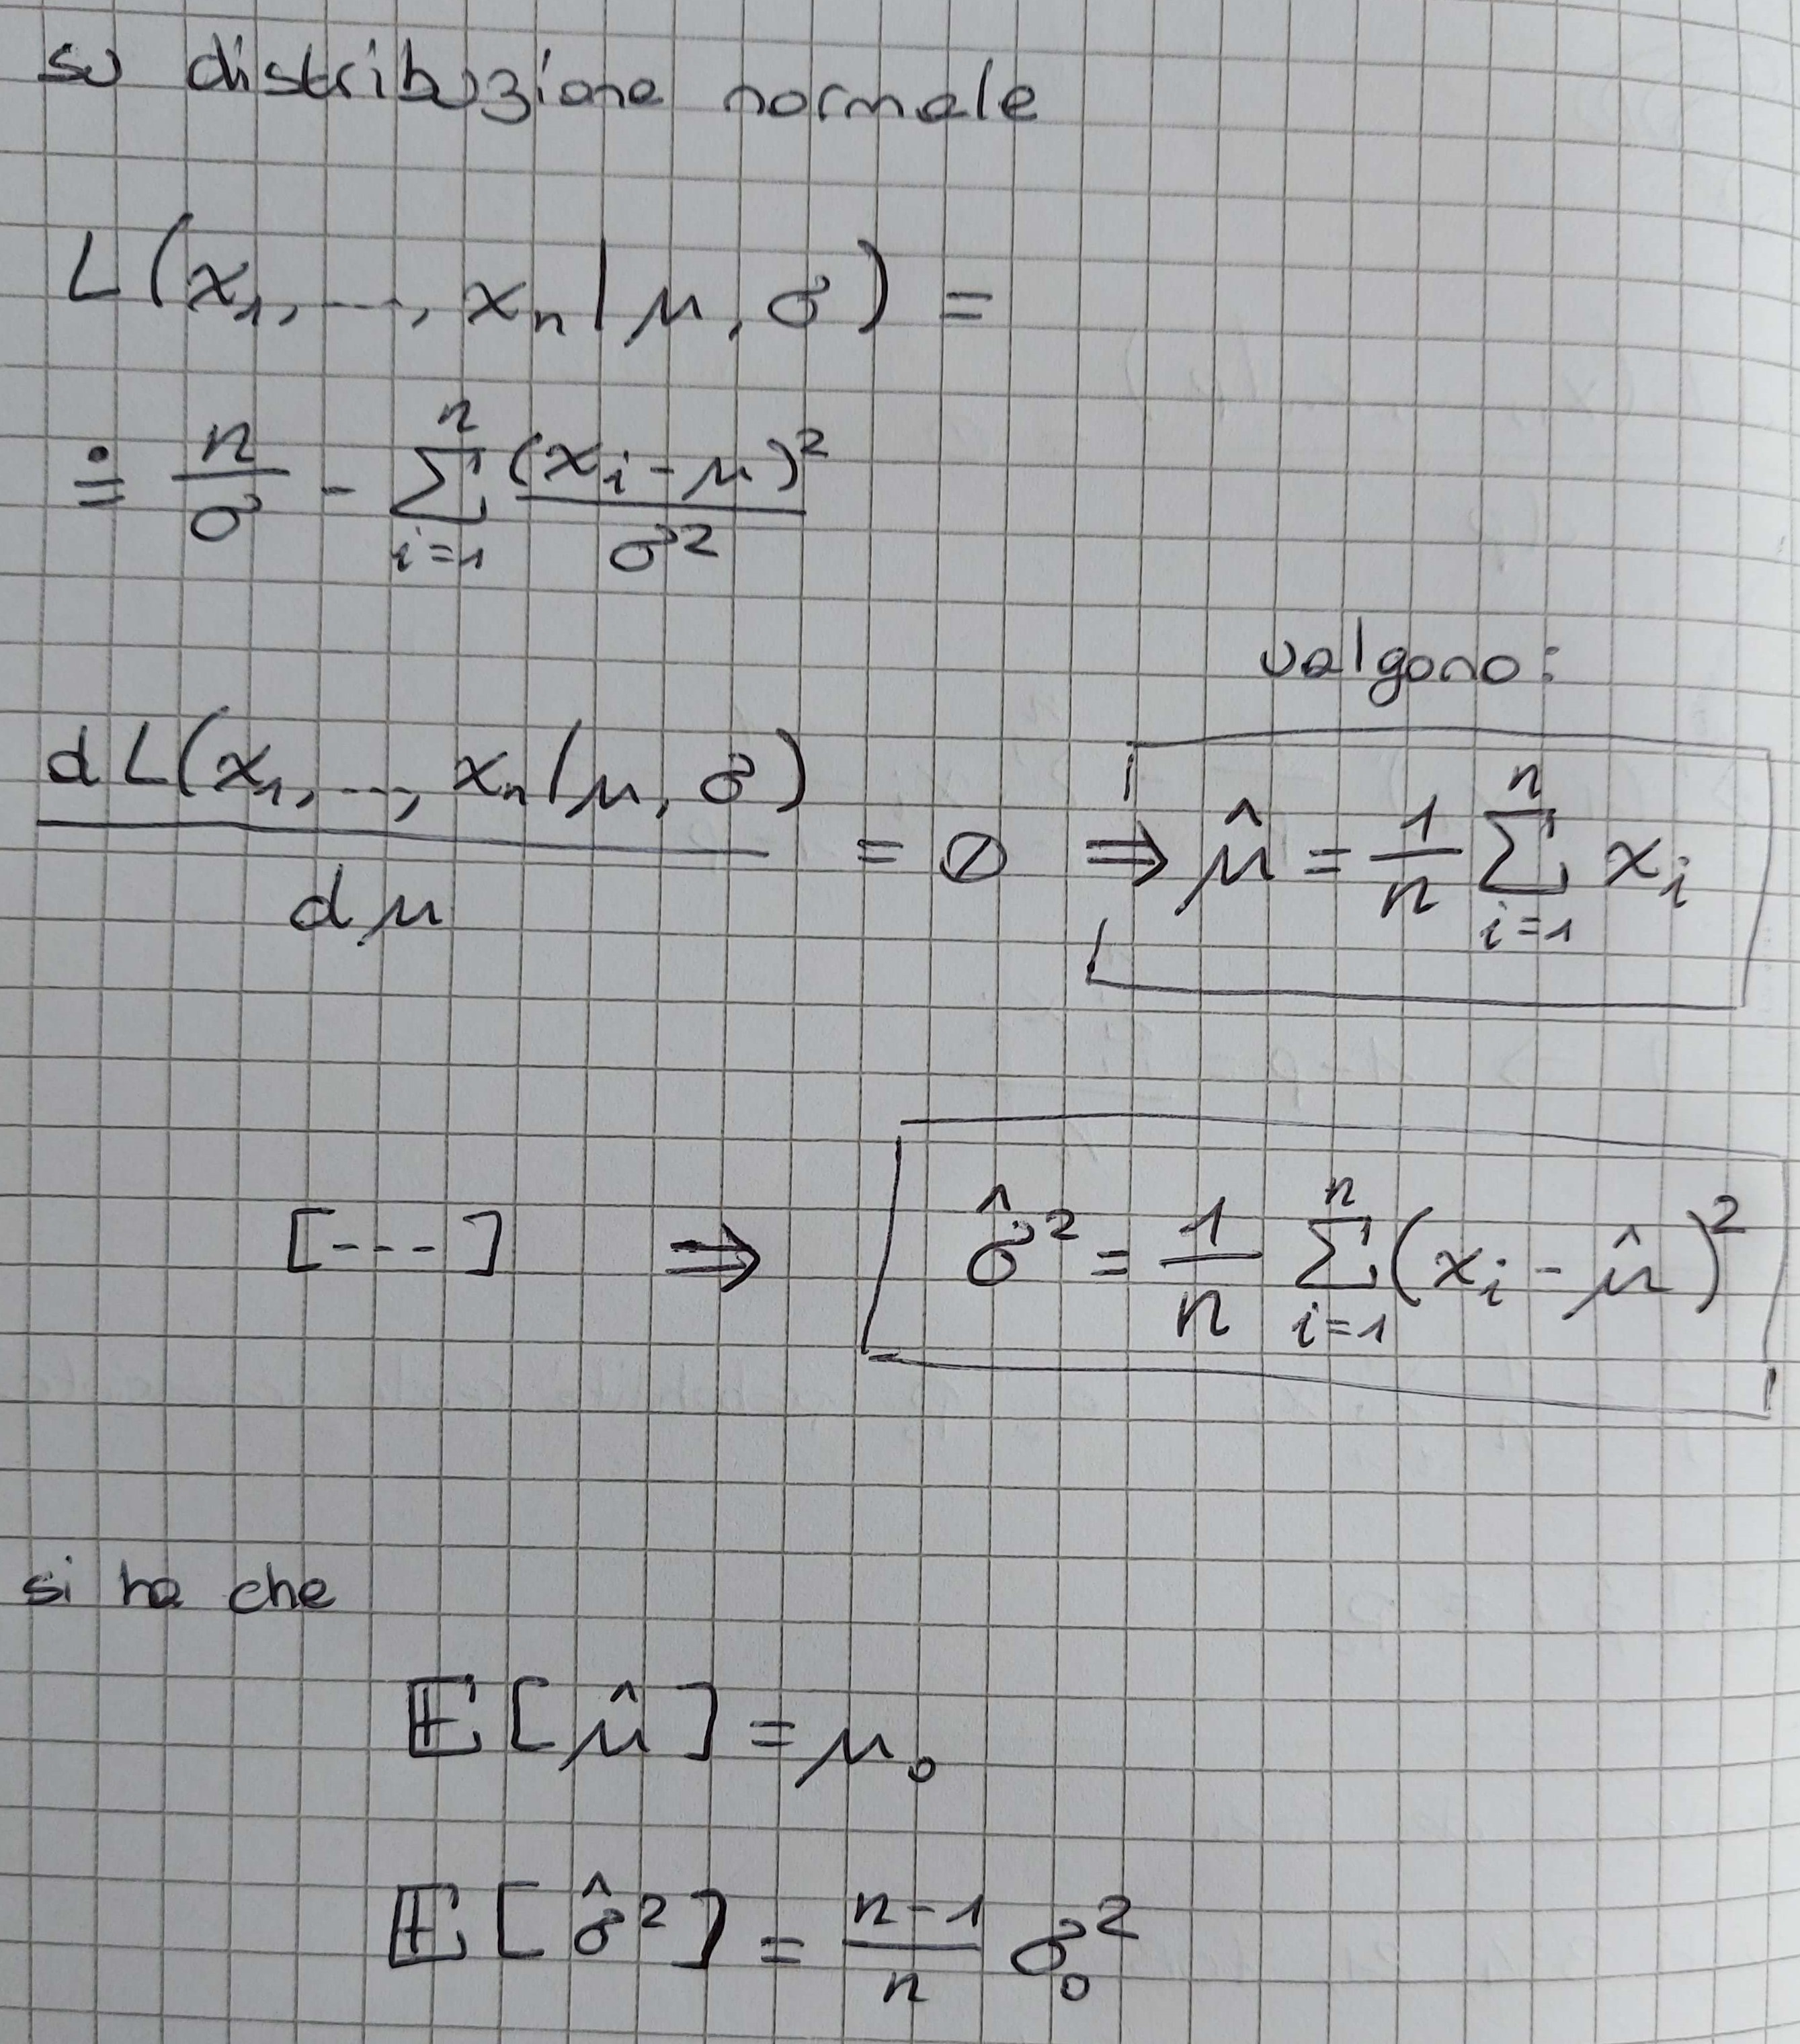 su distribuzione normale
L(x₁, ..., xₙ | μ, σ) =
≐ n/σ - ∑ᵢ₌₁ⁿ (xᵢ - μ)²/σ²
valgono:
dL(x₁, ..., xₙ | μ, σ)/dμ = 0 ⇒ μ̂ = 1/n ∑ᵢ₌₁ⁿ xᵢ
[---] ⇒ σ̂² = 1/n ∑ᵢ₌₁ⁿ (xᵢ - μ̂)²
si ha che
𝔼[μ̂] = μ₀
𝔼[σ̂²] = n-1/n σ₀²